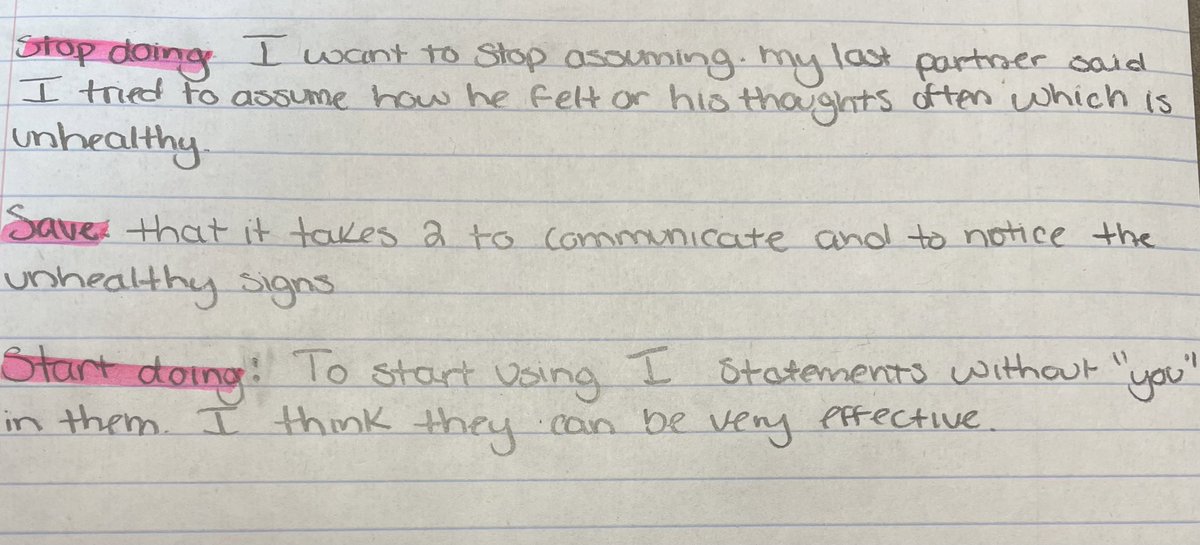 Stop doing: I want to stop assuming. my last partner said
I tried to assume how he felt or his thoughts often which is
unhealthy.
Save: that it takes 2 to communicate and to notice the
unhealthy signs
Start doing: To start using I statements without "you"
in them. I think they can be very effective.